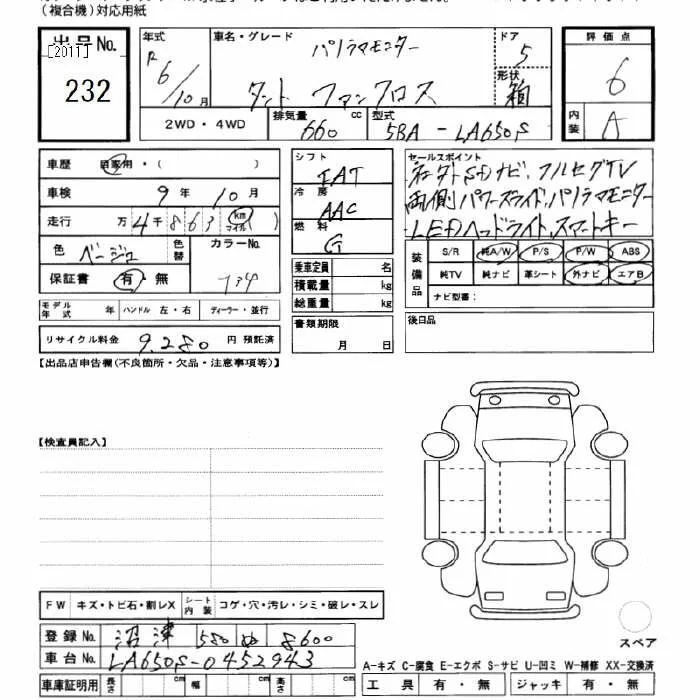 (複合機)対応用紙
出品No.
[2011]
232
年式
R6/10月
車名・グレード
パノラマモニター
タント ファンクロス
ドア
5
形状
箱
評価点
6
内装
A
2WD・4WD
排気量
660 cc
型式
5BA-LA650S
車歴
自家用・( )
車検
9年10月
走行
万4千863 km マイル
色
ベージュ
色替
カラーNo.
T34
保証書
有・無
モデル年式
年
ハンドル 左・右
ディーラー・並行
リサイクル料金
9,280円 預託済
シフト
IAT
冷房
AAC
燃料
G
乗車定員 名
積載量 kg
総重量 kg
書類期限
月 日
セールスポイント
SDナビ、フルセグTV
両側パワースライド、パノラマモニター
LEDヘッドライト、スマートキー
装備品
S/R
純A/W
P/S
P/W
ABS
純TV
純ナビ
革シート
外ナビ
エアB
ナビ型番:
後日品
【出品店申告欄(不良箇所・欠品・注意事項等)】
【検査員記入】
FW
キズ・トビ石・割レX
シート内装
コゲ・穴・汚レ・シミ・破レ・スレ
登録No.
沼津 580 ぬ 8600
車台No.
LA650S-0452943
車庫証明用
長さ cm
幅 cm
高さ cm
スペア
A-キズ C-腐食 E-エクボ S-サビ U-凹ミ W-補修 XX-交換済
工具 有・無
ジャッキ 有・無